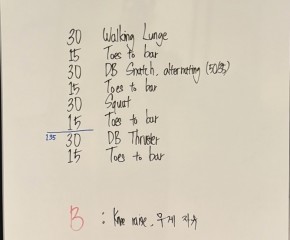 30 Walking Lunge
15 Toes to bar
30 DB Snatch, alternating (50lb)
15 Toes to bar
30 Squat
15 Toes to bar
135 30 DB Thruster
15 Toes to bar
B : Knee raise, 무게 자유